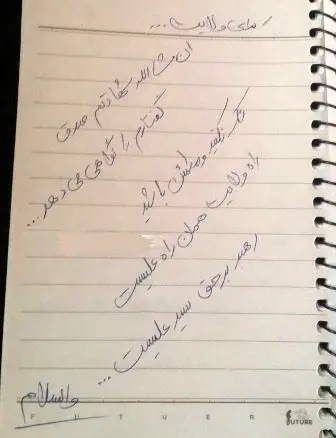 برای ولایت...
ان شاالله شهادتم صدق
گفتارم را گواهی می دهد...
شک نکنید و مطمئن باشید
راه ولایت همان راه علیست
رهبر برحق سید علیست...
والسلام
FUTURE
FUTURE